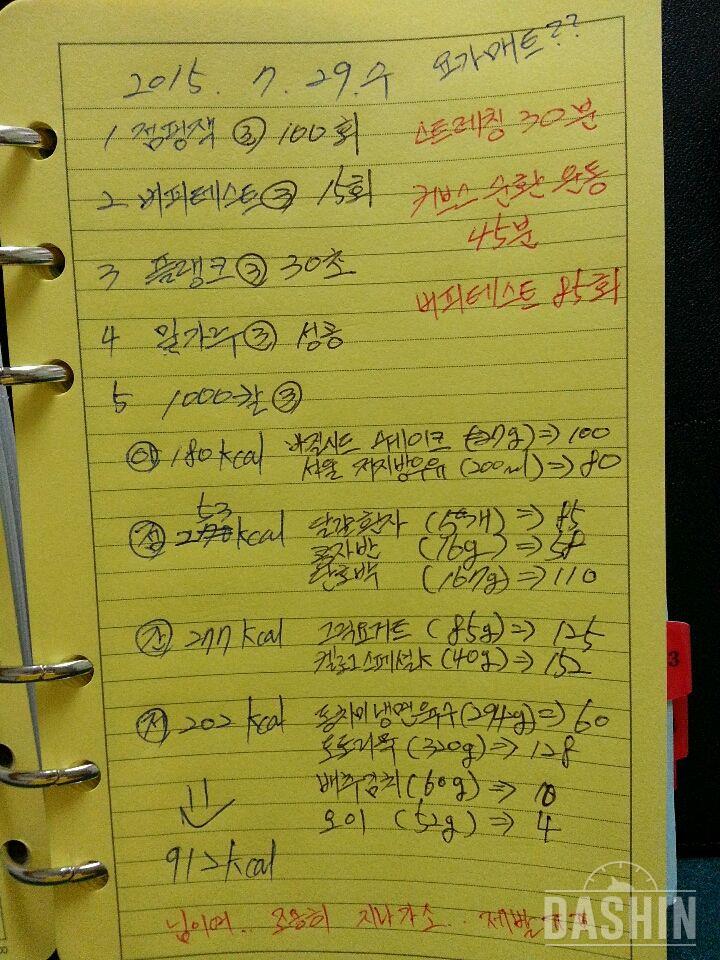 2015. 7. 29. 수 요가매트??
1 점핑잭 ③ 100회 스트레칭 30분
2 버피테스트 ③ 15회 커브스 순환 운동
45분
3 플랭크 ③ 30초
버피테스트 85회
4 밀가루 ③ 성공
5 1000칼 ③
아 180 kcal 스테이크 ⇒ 100
서울 저지방우유 (200ml) ⇒ 80
점 253 kcal 달걀흰자 (5개) ⇒ 85
콩자반 (16g) ⇒ 58
단호박 (167g) ⇒ 110
간 277 kcal 그릭요거트 (85g) ⇒ 125
켈로그스페셜K (40g) ⇒ 152
저 202 kcal 동치미냉면육수 (294g) ⇒ 60
도토리묵 (320g) ⇒ 128
배추김치 (60g) ⇒ 10
오이 (52g) ⇒ 4
912 kcal
님이여.. 조용히 지나가소.. 제발
3
DASHIN